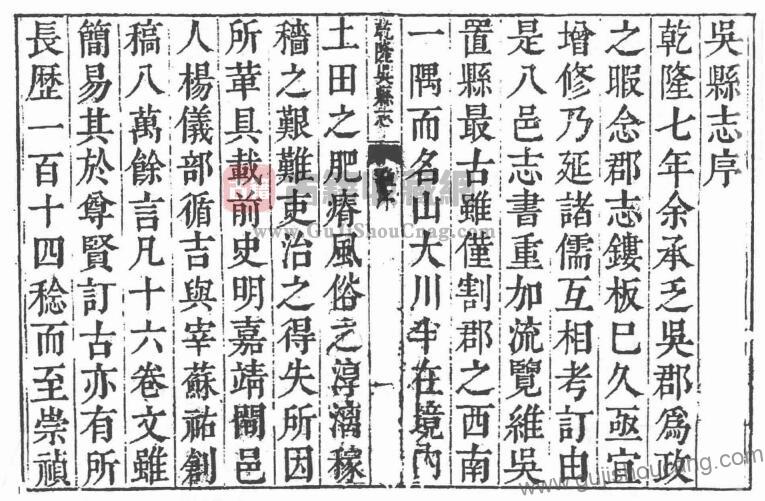 吳縣志序
乾隆七年余承乏吳郡爲政
之暇念郡志鏤板已久亟宜
增修乃延諸儒互相考訂由
是八邑志書重加流覽維吳
置縣最古雖僅割郡之西南
一隅而名山大川半在境內
乾隆吳縣志
序
一
土田之肥瘠風俗之淳漓稼
穡之艱難吏治之得失所因
所革具載前史明嘉靖間邑
人楊儀部循吉與宰蘇祐創
稿八萬餘言凡十六卷文雖
簡易其於尊賢訂古亦有所
長歷一百十四稔而至崇禎
古籍收藏網
www.GujiShouCang.com
www.gujishoucang.com